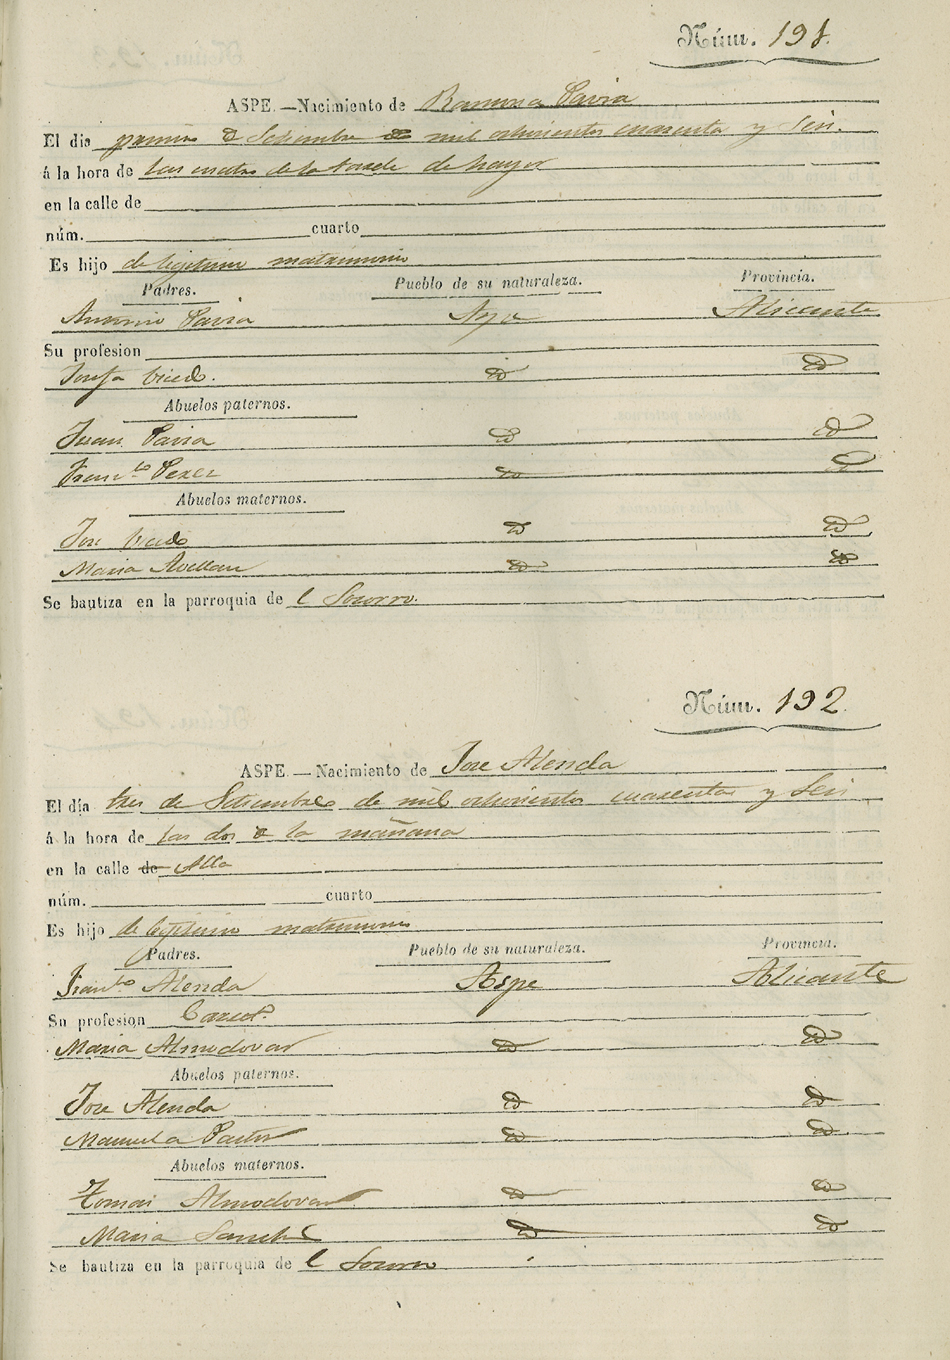 Núm. 191.
ASPE.—Nacimiento de Ramona Pavia
El dia primero de Setiembre de mil ochocientos cuarenta y seis.
á la hora de las cuatro de la tarde de hayer
en la calle de
núm. cuarto
Es hijo de legitimo matrimonio
Padres. Pueblo de su naturaleza. Provincia.
Antonio Pavia Aspe Alicante
Su profesion
Josefa Vicedo. id id
Abuelos paternos.
Juan Pavia id id
Fran.ca Perez id id
Abuelos maternos.
Jose Vicedo id id
Maria Avellan id id
Se bautiza en la parroquia de l Socorro.
Núm. 192.
ASPE.—Nacimiento de Jose Alenda
El día tres de Setiembre de mil ochocientos cuarenta y seis
á la hora de las dos de la mañana
en la calle de Alta
núm. cuarto
Es hijo de legitimo matrimonio
Padres. Pueblo de su naturaleza. Provincia.
Fran.co Alenda Aspe Alicante
Su profesion
Maria Almodovar id id
Abuelos paternos.
Jose Alenda id id
Manuela Pastor id id
Abuelos maternos.
Tomas Almodovar id id
Maria Sanchez id id
Se bautiza en la parroquia de l Socorro